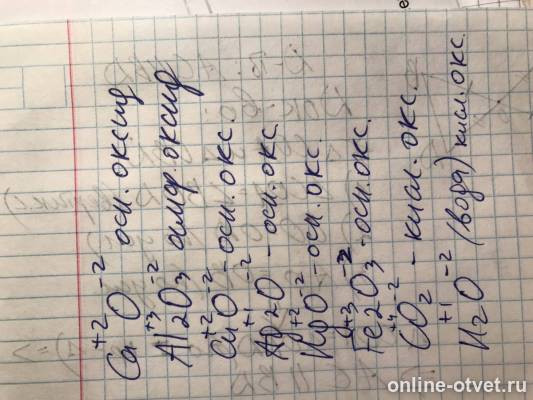 +2 -2
CaO осн. оксид
+3 -2
Al2O3 амф. оксид
+2 -2
CuO - осн. окс.
+1 -2
Ag2O - осн. окс.
+2 -2
HgO - осн. окс.
+3 -2
Fe2O3 - осн. окс.
+4 -2
CO2 - кисл. окс.
+1 -2
H2O (вода) кисл. окс.
online-otvet.ru